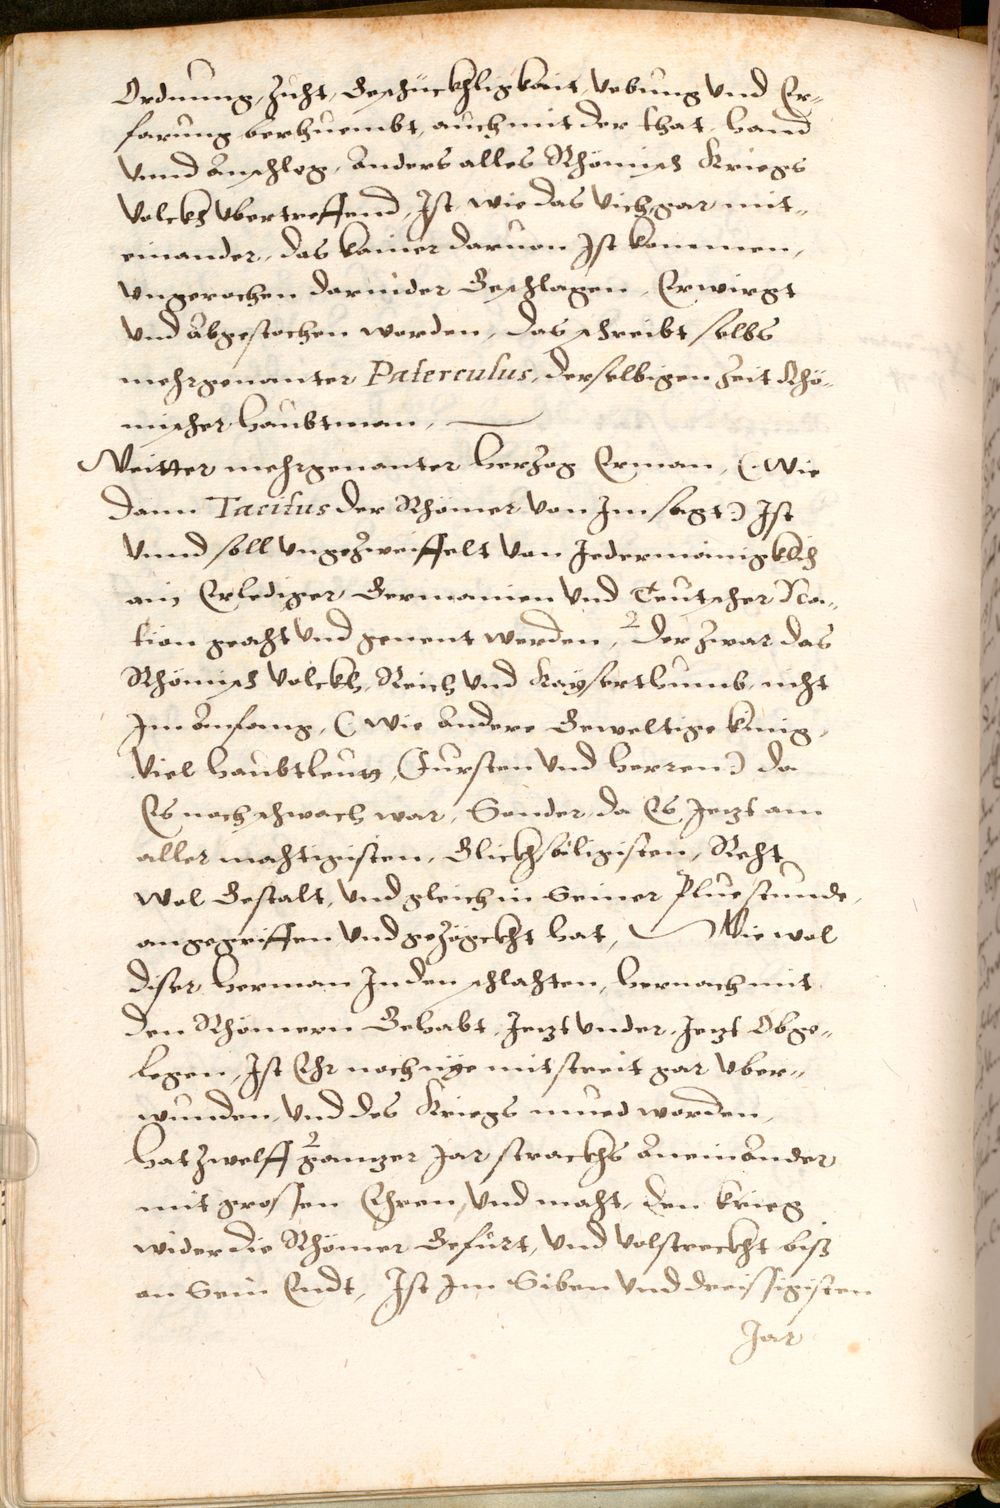 Ordnung, Zucht, Geschücklhligkait, Vebung Vnd Er„
farung berhuembt, auch mit der that, hand
Vnnd Anschleg, Anders alles Rhömisch Kriegs
Volckh Vbertreffend, Ist, wie das Vich, gar mit„
einander, das kainer daruon Ist kommen,
Vngerochen darnider Geschlagen, Erwirgt
Vnd Abgestochen worden, das schreibt selbs
mehrgenanter Paterculus, derselbigen Zeit Rhö„
mischer Haubtman,
Weitter mehrgenanter Herzog Erman, (Wie
dann Tacitus der Rhömer Von Im sagt) Ist
Vnnd soll Vngezweiffelt Von Jedermänigklich
ain Erlediger Germanien Vnd Teutscher Na„
tion geacht Vnd genent werden, Der zwar das
Rhömisch Volckh, Reich Vnd Kayserthumb, nicht
Im Anfang, (Wie Andere Geweltige künig,
Viel Haubtleut, Fursten Vnd Herren) da
Es noch schwach war, Sonder, da Es Jetzt am
aller mächtigisten, Glückhsäligisten, Recht
Wol Gestalt, Vnd gleich in Seiner Pluestunde,
angegriffen Vnd gezögckht hat, Wie wol
diser Herman In den schlachten, hernach mit
den Rhömern Gehabt, Jetzt Vnder, Jetzt Obge„
legen, Ist Ehr noch nye mit streit gar Vber„
wunden, Vnd des Kriegs mued worden,
hat zwelff gantzer Jar strackhs Aneinander
mit grossen Ehren, Vnd macht, den krieg
wider die Rhömer Gefürt, Vnd Volstreckht biß
an Sein Endt, Ist Im Siben Vnd dreissigisten
Jar